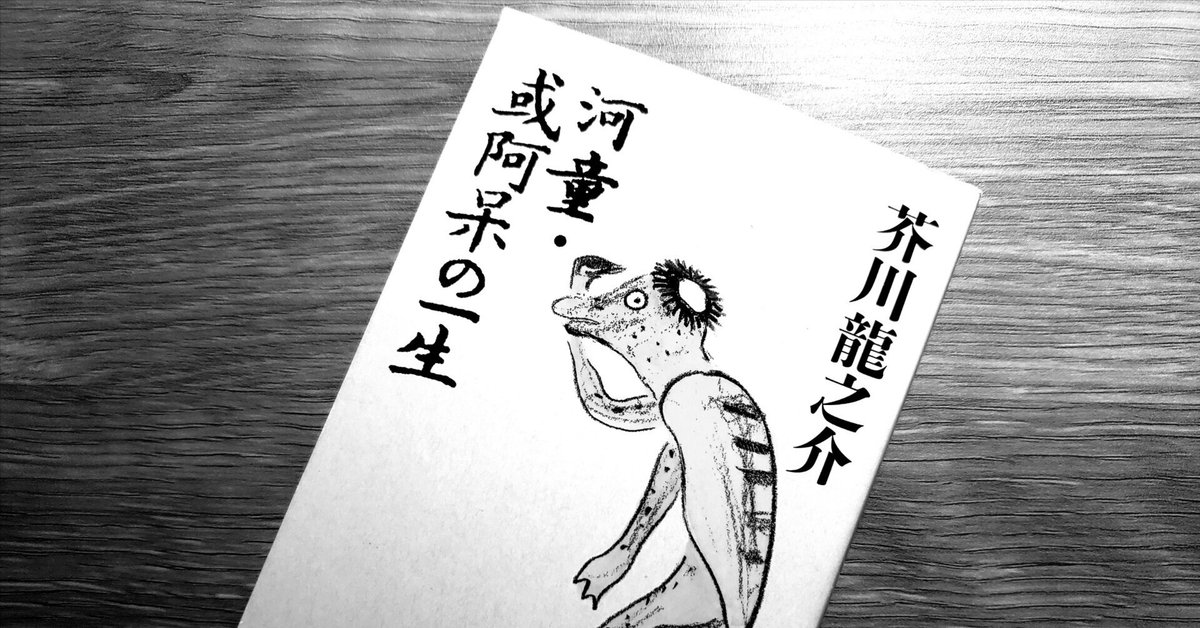 芥川龍之介
河童・
或阿呆の一生